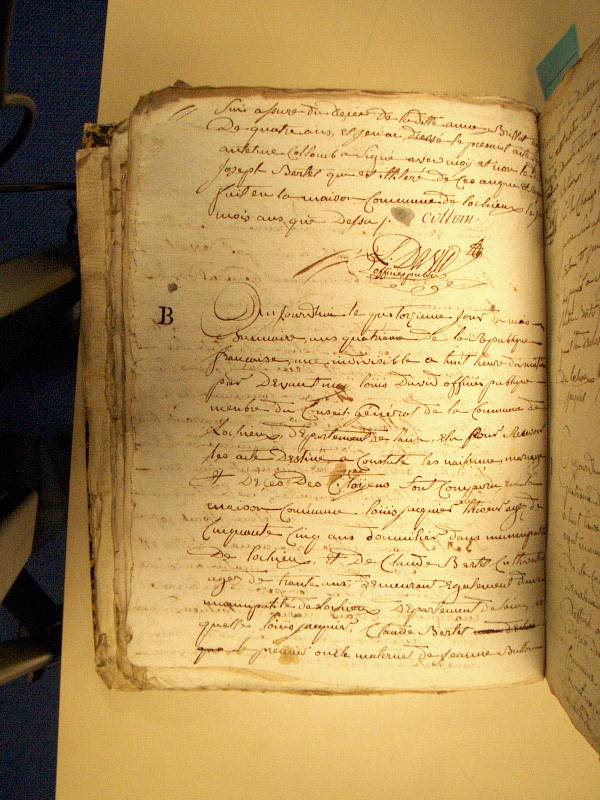 suis assuré du décès de laditte anne Brillet
de quatre ans, et j'en ai dressé le présent acte
antelme Collomb a signé avec moi et non le
Joseph Bertet qui est illitéré de ceo anquis et
fait en la maison Commune de lochieux le jour
mois ans que dessu /. Collom.
L. David
officier public
B
Aujourdhui le quatorzieme jour du mois
Brumaire ans quatrieme de la Republique
française une indivisible a huit heure du matin
par Devant moy louis David officier publique
menbre du Conseil général de la Commune de
Lochieux, département de l'ain, elu pour Recevoir
les acte destiné a Constaté les naissence, mariage
et Décès Des Citoyens sont Comparu en la
maison Commune louis jacquier agé de
Cinquante Cinq ans domicilier dans municipalité
De lochieux. et De Claude Bertet Cultivateur
agez de trante ans. demeurant Egalement dans
municipalité de lochieux Département de l'ain,
quelle louis jacquier. Claude Bertet
le premier oncle maternel de Jeanne Brillet